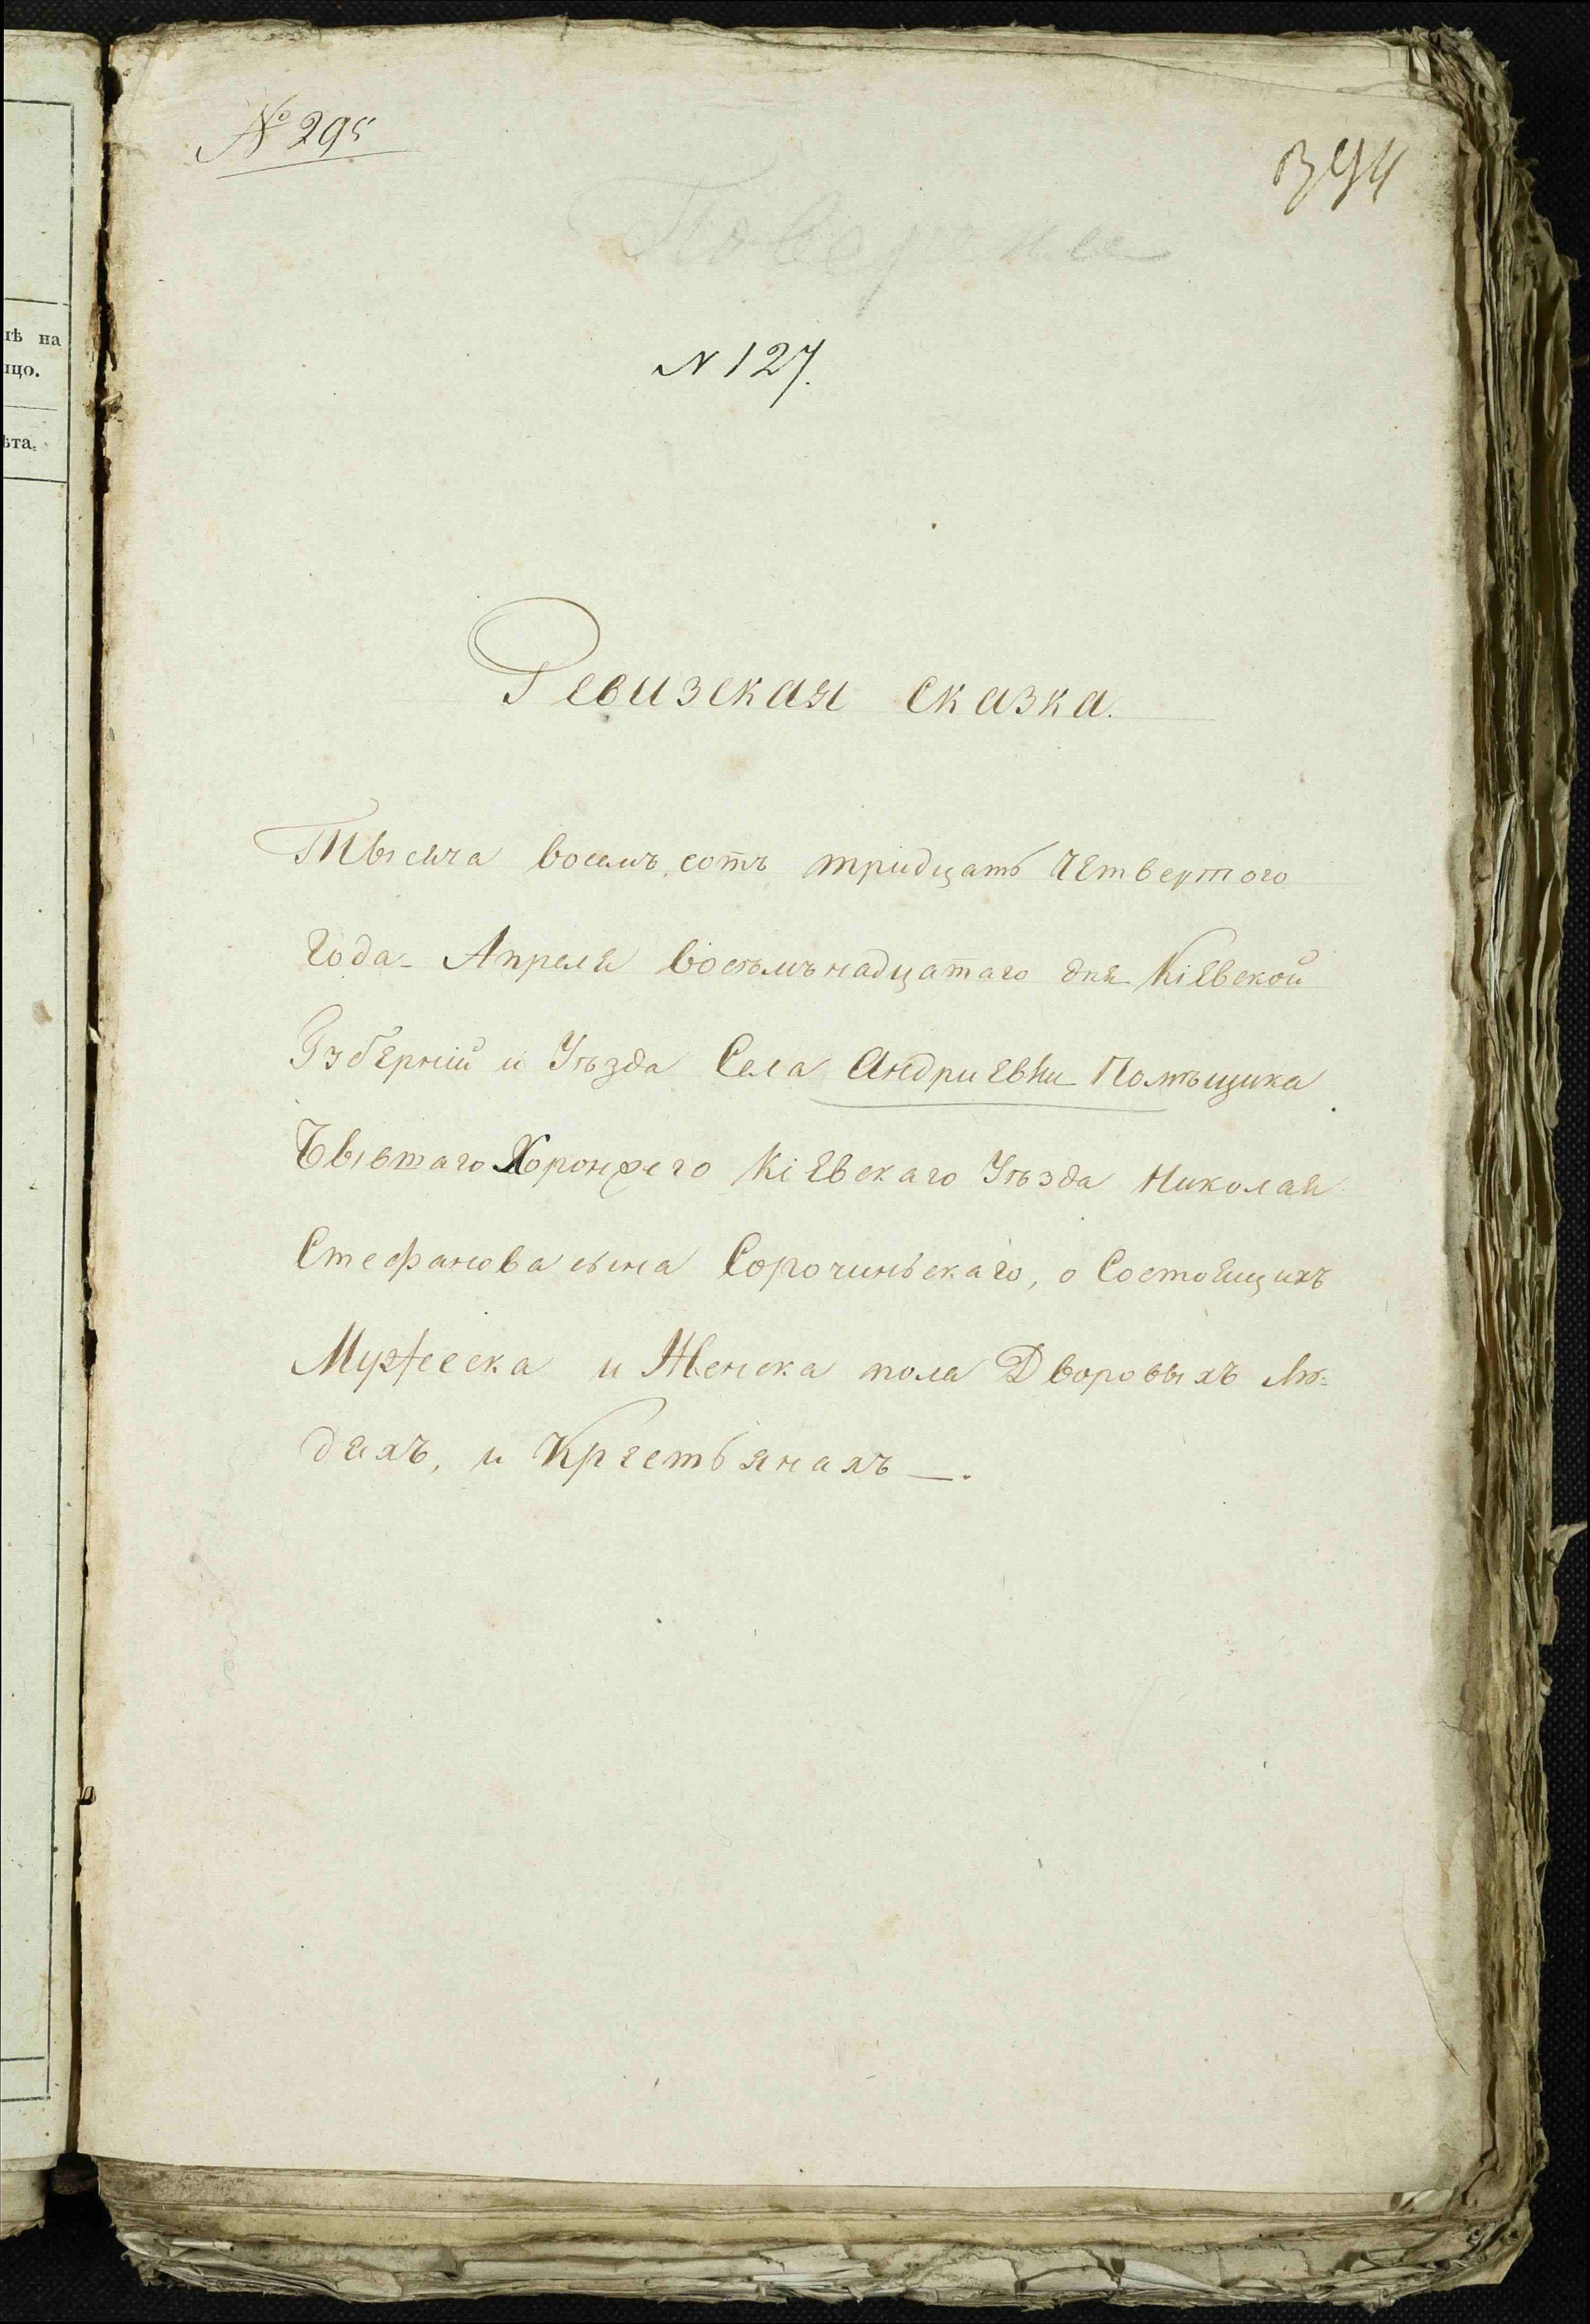 № 295
394
N 127.
Ревизская сказка.
Тысяча восемъ сотъ тридцать Четвертого
Года - Апреля восемънадцатаго дня Кіевской
Губерніи и Уѣзда Села Андриевки Помѣщика
Бывшаго Хорончего Кіевскаго Уѣзда Николая
Стефанова сына Сорочинскаго, о Состоящихъ
Мужеска и Женска пола Дворовыхъ Лю-
дяхъ, и Крестьянахъ —.
лѣ на
ицо.
ѣта.